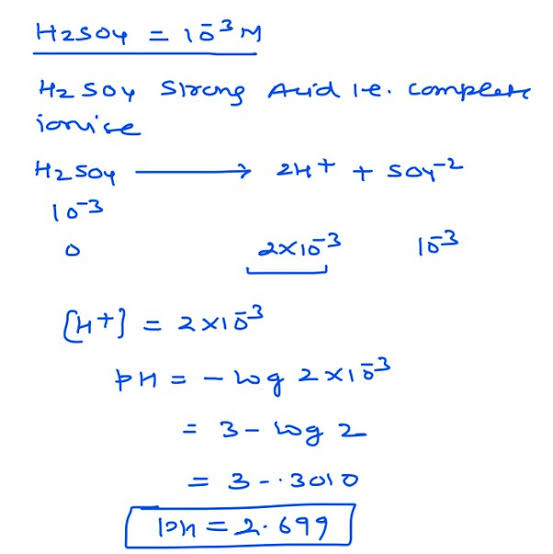 H2SO4 = 10^-3 M
H2SO4 Strong Acid i.e. complete
ionise
H2SO4 ⟶ 2H+ + SO4^-2
10^-3
0 2×10^-3 10^-3
[H+] = 2×10^-3
pH = - log 2×10^-3
= 3 - log 2
= 3 - .3010
pH = 2.699